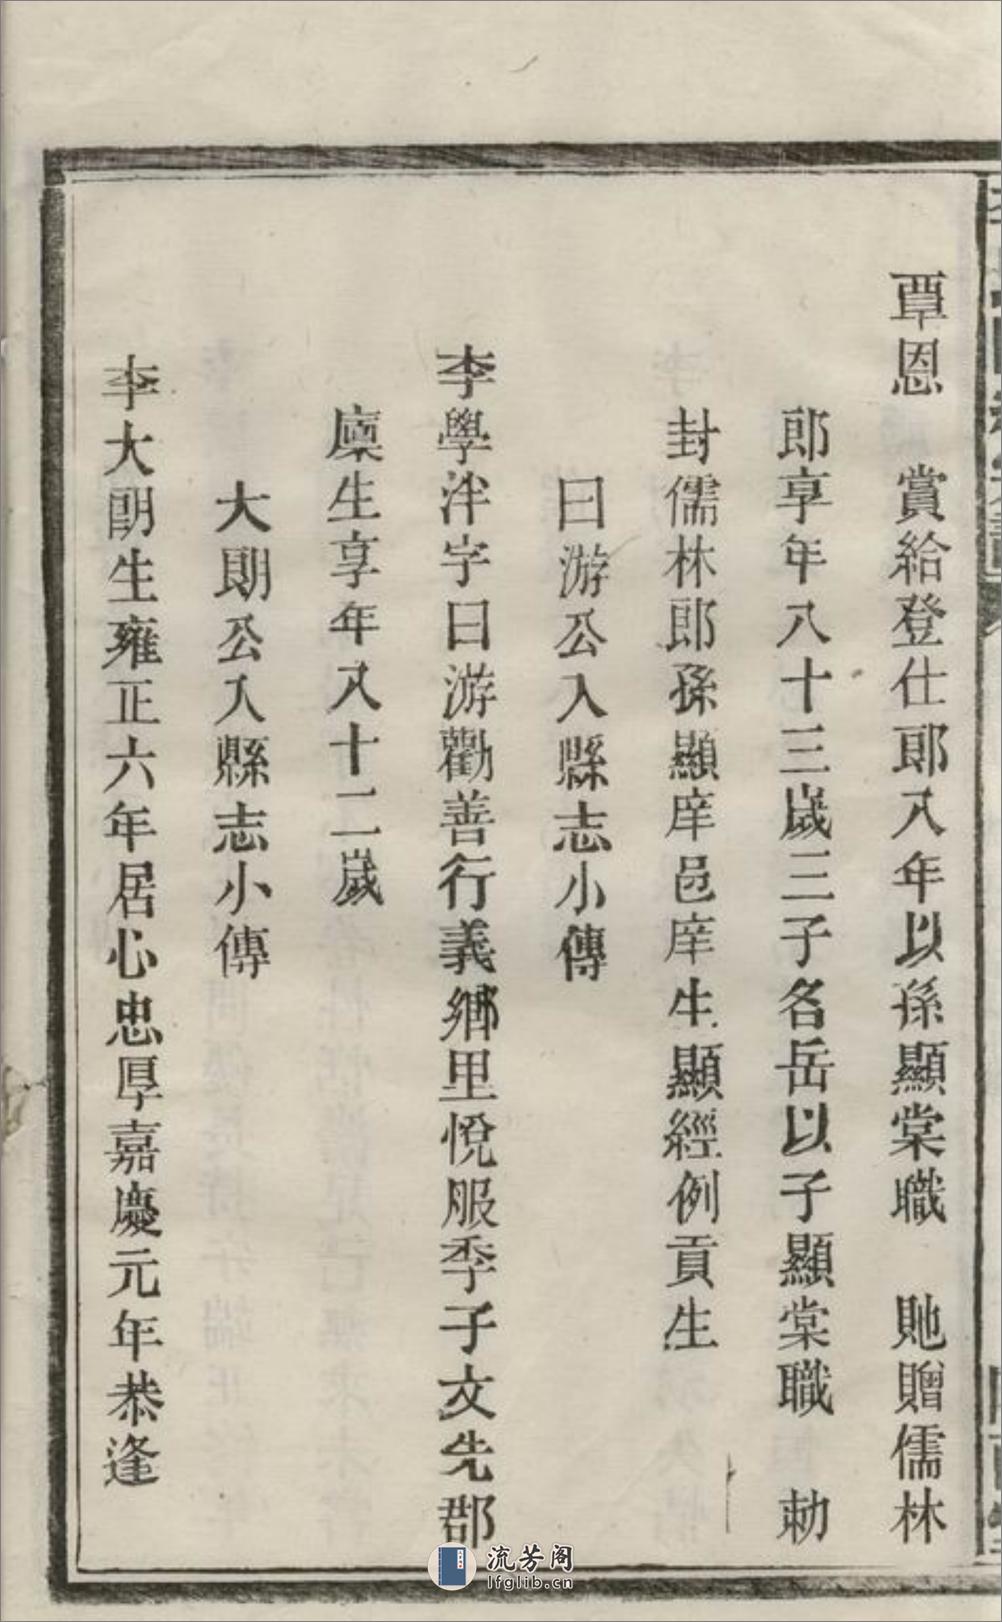 覃恩　賞給登仕郎八年以孫顯棠職　貤贈儒林
郎享年八十三歲三子各岳以子顯棠職　勅
封儒林郎孫顯庠邑庠生顯經例貢生
曰游公入縣志小傳
李學泮字曰游勸善行義鄉里悅服季子文先郡
廪生享年八十二歲
大朗公入縣志小傳
李大朗生雍正六年居心忠厚嘉慶元年恭逢
流芳阁
lfglib.cn